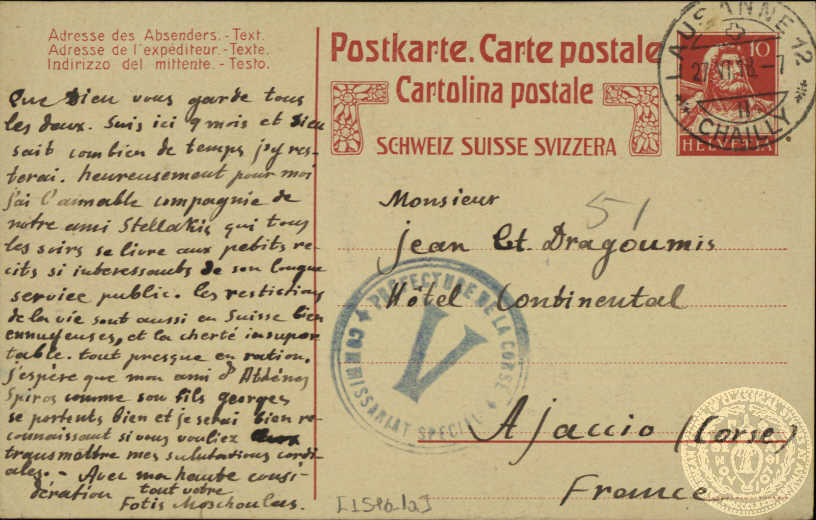 Adresse des Absenders.-Text.
Adresse de l'expéditeur.-Texte.
Indirizzo del mittente.-Testo.
Postkarte. Carte postale
Cartolina postale
SCHWEIZ SUISSE SVIZZERA
LAUSANNE 12
27 VI 18.-7
II
CHAILLY
10
HELVETIA
Que Dieu vous garde tous
les deux. Suis ici 9 mois et Dieu
sait combien de temps j'y res-
terai. heureusement pour moi
j'ai l'aimable compagnie de
notre ami Stellakis qui tous
les soirs se livre aux petits re-
cits si interessants de son longue
service public. les restictions
de la vie sont aussi en Suisse bien
ennuyeuses, et la cherté insupor
table. tout presque en ration.
j'espère que mon ami d'Athénes
Spiros comme son fils georges
se portents bien et je serai bien re-
connaissant si vous vouliez
transmettre mes salutations cordi-
ales. - Avec ma haute consi-
dération tout votre
Fotis Moschoulas.
51
Monsieur
Jean Et. Dragoumis
Hôtel Continental
Ajaccio (Corse)
France
PREFECTURE DE LA CORSE
COMMISSARIAT SPECIAL
V